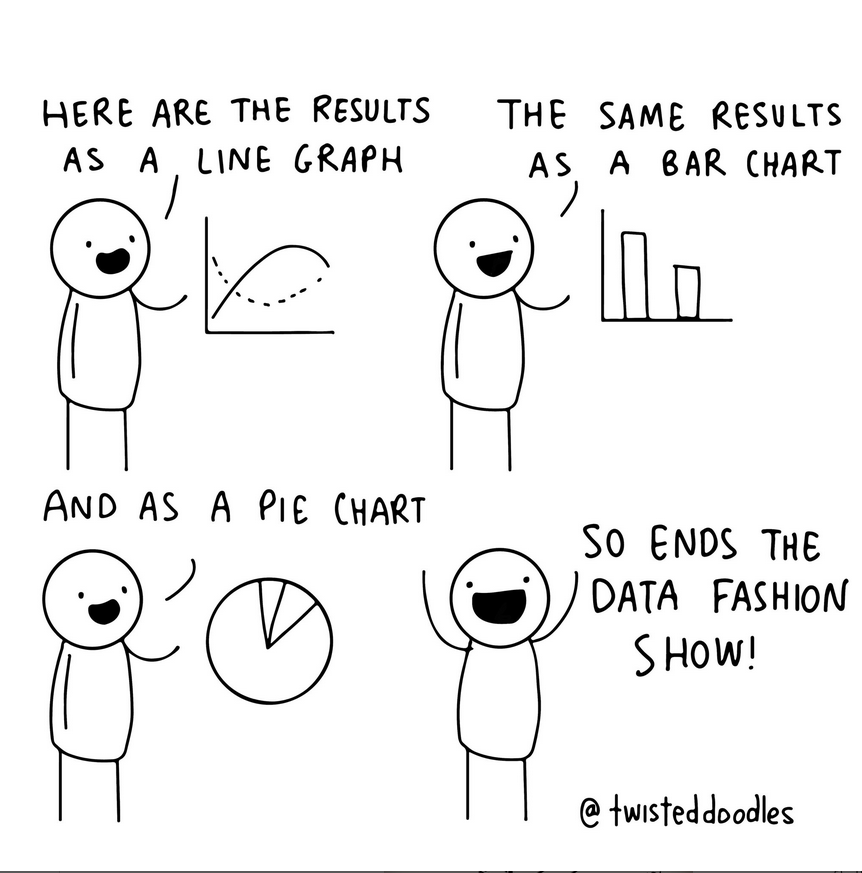 HERE ARE THE RESULTS
AS A LINE GRAPH
THE SAME RESULTS
AS A BAR CHART
AND AS A PIE CHART
SO ENDS THE
DATA FASHION
SHOW!
@twisteddoodles